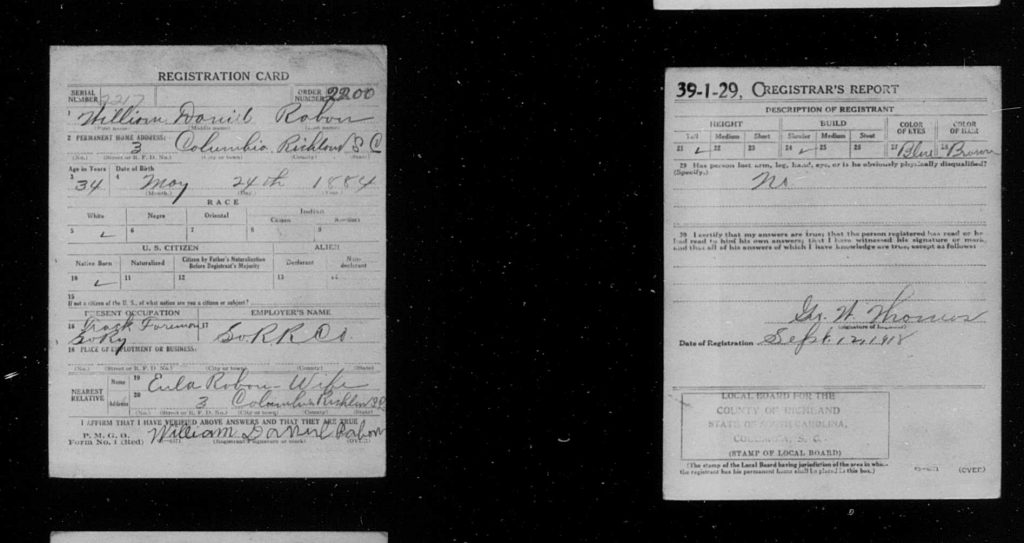 REGISTRATION CARD
SERIAL NUMBER 2217 ORDER NUMBER 2200
1 William Daniel Rabon
(First name) (Middle name) (Last name)
2 PERMANENT HOME ADDRESS:
3 Columbia Richland S C
(No.) (Street or R. F. D. No.) (City or town) (County) (State)
Age in Years Date of Birth
3 34 4 May 24th 1884
(Month.) (Day.) (Year.)
RACE
White Negro Oriental Indian
Citizen Noncitizen
5 ✓ 6 7 8 9
U. S. CITIZEN ALIEN
Native Born Naturalized Citizen by Father's Naturalization Before Registrant's Majority Declarant Non-declarant
10 ✓ 11 12 13 14
15
If not a citizen of the U. S., of what nation are you a citizen or subject?
PRESENT OCCUPATION EMPLOYER'S NAME
16 Track Foreman 17
So Ry So R R Co.
18 PLACE OF EMPLOYMENT OR BUSINESS:
(No.) (Street or R. F. D. No.) (City or town) (County) (State)
NEAREST RELATIVE Name 19 Eula Rabon - Wife
Address 20 3 Columbia Richland S C
(No.) (Street or R. F. D. No.) (City or town) (County) (State)
I AFFIRM THAT I HAVE VERIFIED ABOVE ANSWERS AND THAT THEY ARE TRUE
P. M. G. O.
Form No. 1 (Red) William Daniel Rabon
(Registrant's signature or mark) (OVER)
39-1-29, C REGISTRAR'S REPORT
DESCRIPTION OF REGISTRANT
HEIGHT BUILD COLOR OF EYES COLOR OF HAIR
Tall Medium Short Slender Medium Stout
21 ✓ 22 23 24 ✓ 25 26 27 Blue 28 Brown
29 Has person lost arm, leg, hand, eye, or is he obviously physically disqualified?
(Specify.) No
30 I certify that my answers are true; that the person registered has read or has
had read to him his own answers; that I have witnessed his signature or mark,
and that all of his answers of which I have knowledge are true, except as follows:
Geo. W. Thomas
(Signature of Registrar)
Date of Registration Sept 12, 1918
LOCAL BOARD FOR THE
COUNTY OF RICHLAND
STATE OF SOUTH CAROLINA,
COLUMBIA, S. C.
(STAMP OF LOCAL BOARD)
(The stamp of the Local Board having jurisdiction of the area in which
the registrant has his permanent home shall be placed in this box.)
(OVER)